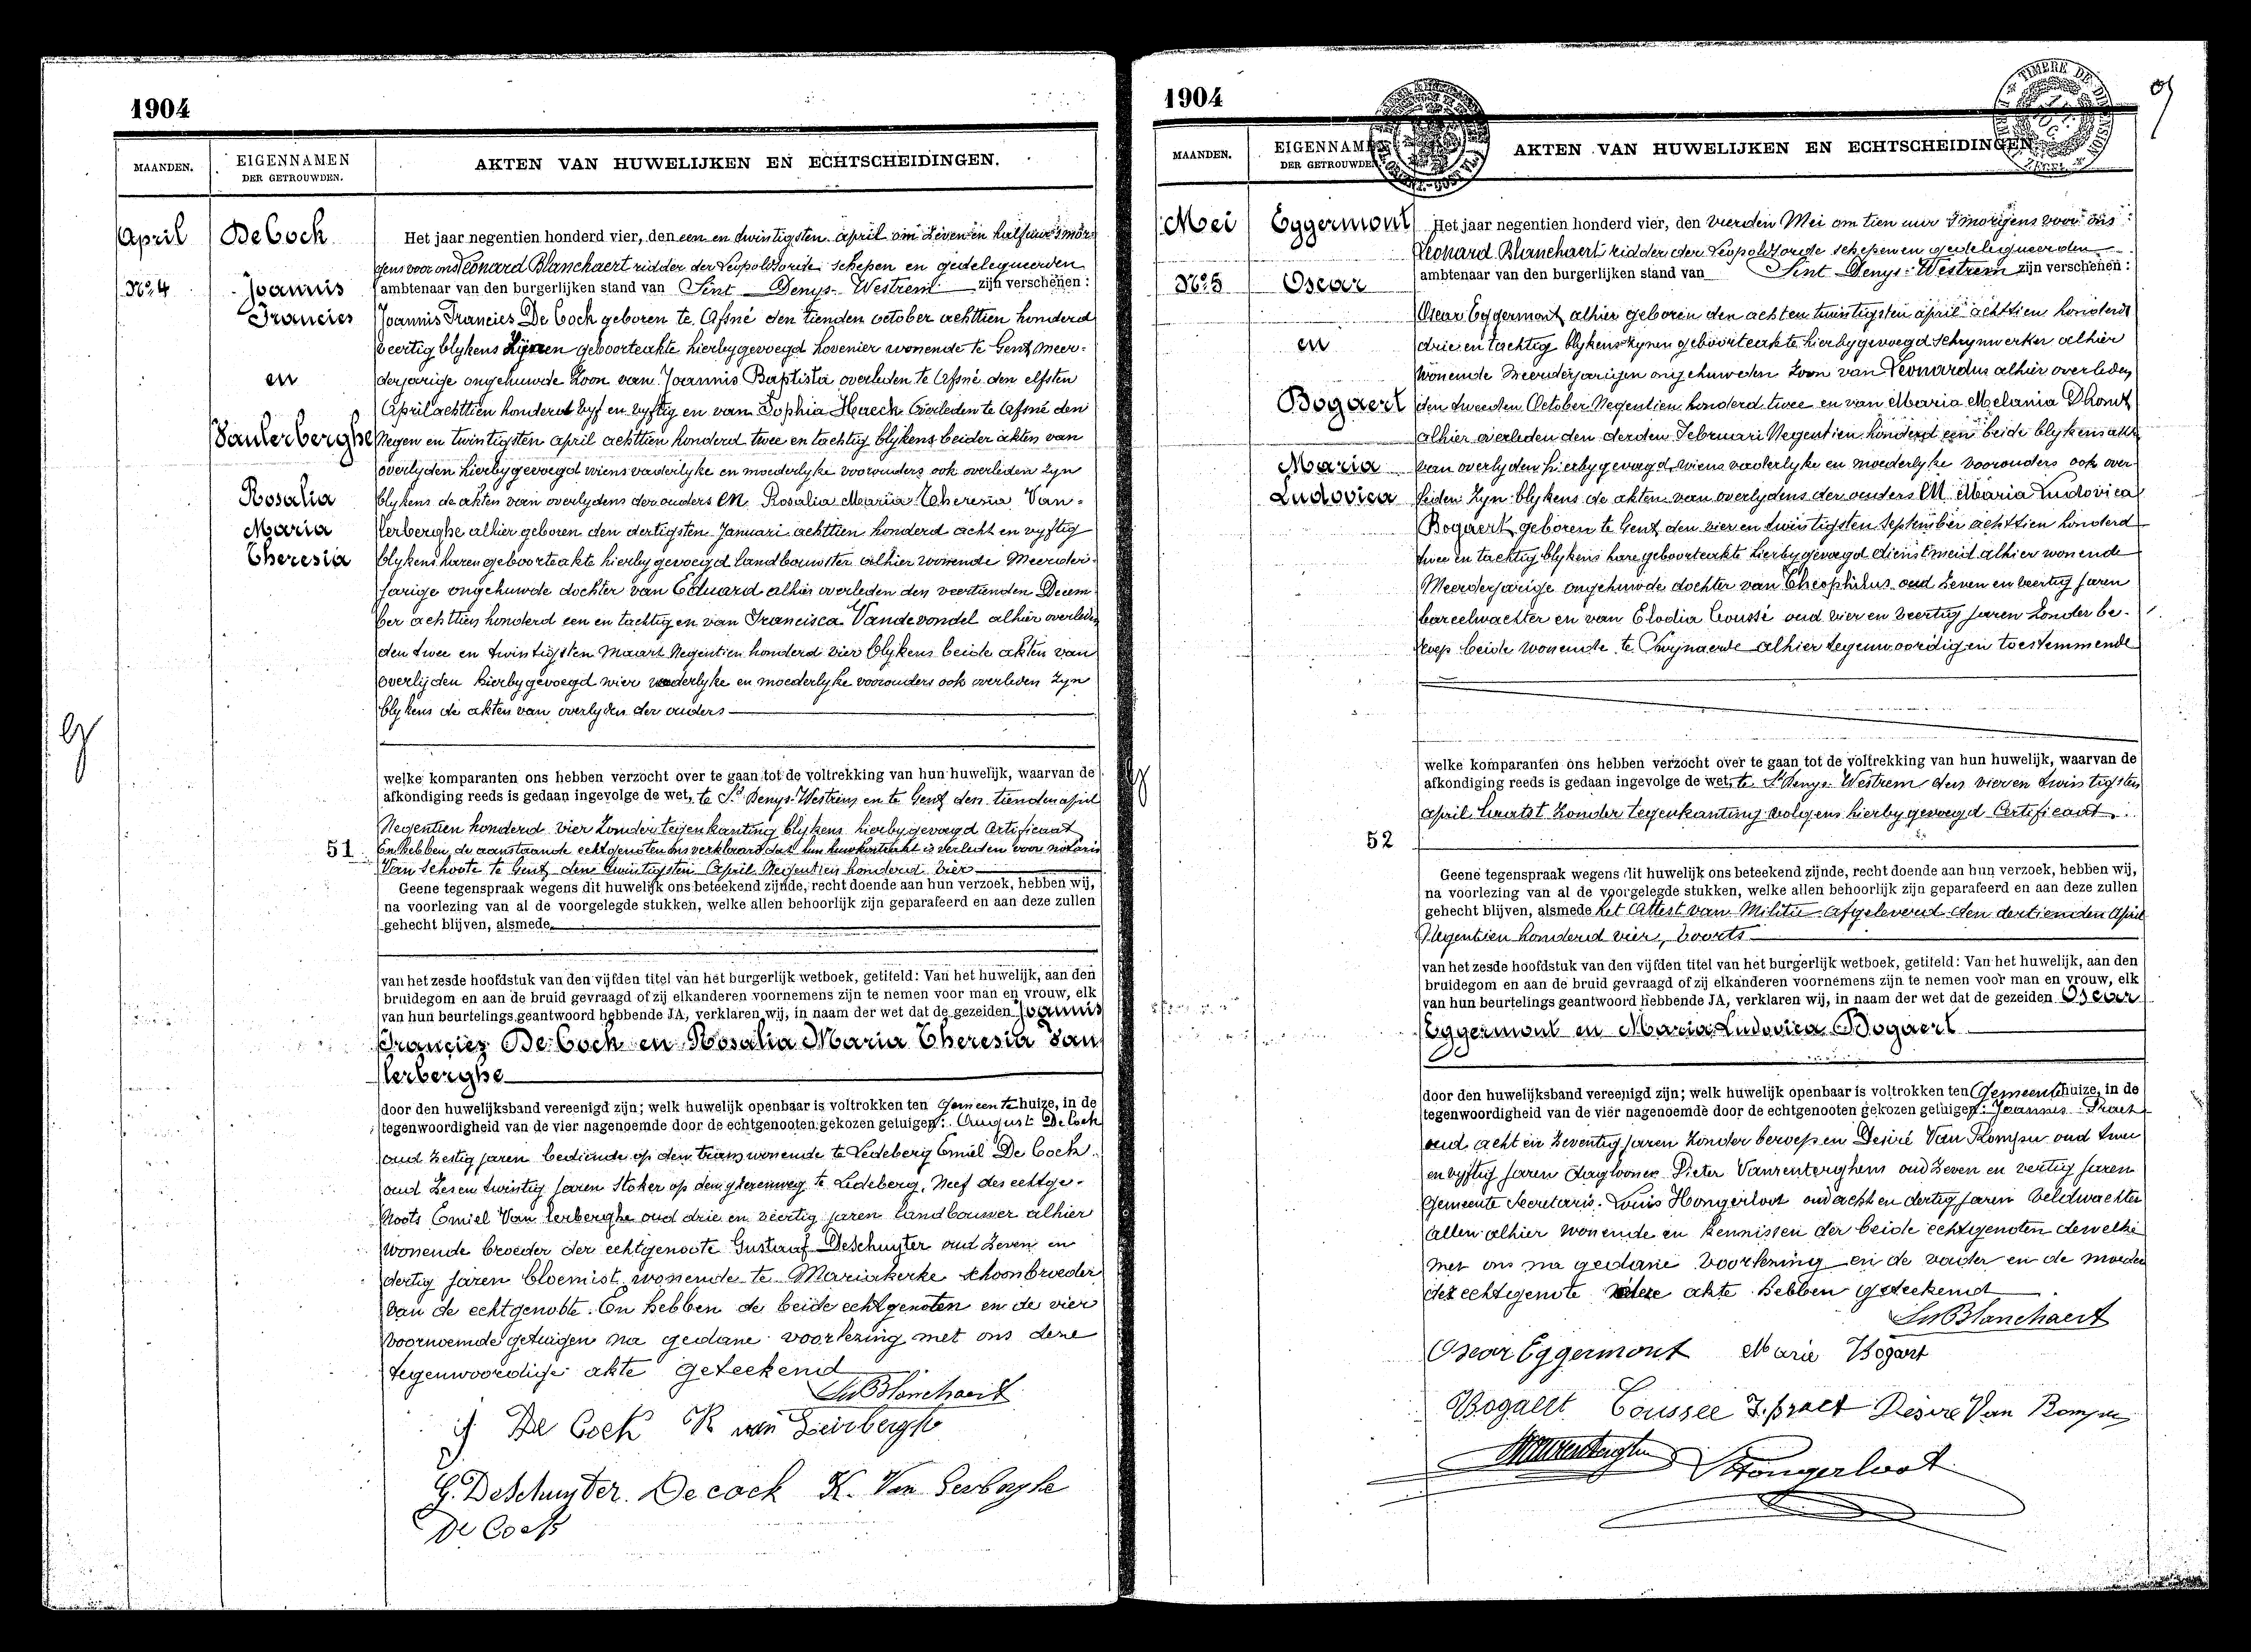 1904
MAANDEN.
EIGENNAMEN
DER GETROUWDEN.
AKTEN VAN HUWELIJKEN EN ECHTSCHEIDINGEN.
April
No. 4
De Cock
Joannis
Francies
en
Vanlerberghe
Rosalia
Maria
Theresia
Het jaar negentien honderd vier, den een en twintigsten april om zeven en half uur 's mor-
gens voor ons Leonard Blanchaert ridder der Leopoldsorde schepen en gedelegueerden
ambtenaar van den burgerlijken stand van Sint Denys-Westrem zijn verschenen:
Joannis Francies De Cock geboren te Afsné den tienden october achttien honderd
veertig blykens zynen geboorteakte hierbygevoegd hovenier wonende te Gent meer-
derjarige ongehuwde zoon van Joannis Baptista overleden te Afsné den elfsten
April achttien honderd vyf en vyftig en van Sophia Haeck overleden te Afsné den
Negen en twintigsten april achttien honderd twee en tachtig blykens beider akten van
overlyden hierbygevoegd wiens vaderlyke en moederlyke voorouders ook overleden zyn
blykens de akten van overlydens der ouders EN Rosalia Maria Theresia Van-
lerberghe alhier geboren den dertigsten Januari achttien honderd acht en vyftig
blykens haren geboorteakte hierbygevoegd landbouwster alhier wonende Meerder-
jarige ongehuwde dochter van Eduard alhier overleden den veertienden Decem-
ber achttien honderd een en tachtig en van Francisca Vandevondel alhier overleden
den twee en twintigsten Maart Negentien honderd vier blykens beide akten van
overlijden hierbygevoegd wier vaderlyke en moederlyke voorouders ook overleden zyn
blykens de akten van overlyden der ouders
welke komparanten ons hebben verzocht over te gaan tot de voltrekking van hun huwelijk, waarvan de
afkondiging reeds is gedaan ingevolge de wet, te St Denys-Westrem en te Gent den tienden april
Negentien honderd vier zonder tegenkanting blykens hierbygevoegd Certificaat
51
En hebben de aanstaande echtgenoten ons verklaard dat hun huwkontrakt is verleden voor notaris
Van Schoote te Gent den twintigsten April Negentien honderd vier
Geene tegenspraak wegens dit huwelijk ons beteekend zijnde, recht doende aan hun verzoek, hebben wij,
na voorlezing van al de voorgelegde stukken, welke allen behoorlijk zijn geparafeerd en aan deze zullen
gehecht blijven, alsmede
van het zesde hoofdstuk van den vijfden titel van het burgerlijk wetboek, getiteld: Van het huwelijk, aan den
bruidegom en aan de bruid gevraagd of zij elkanderen voornemens zijn te nemen voor man en vrouw, elk
van hun beurtelings geantwoord hebbende JA, verklaren wij, in naam der wet dat de gezeiden Joannis
Francies De Cock en Rosalia Maria Theresia Van
lerberghe
door den huwelijksband vereenigd zijn; welk huwelijk openbaar is voltrokken ten Gemeentehuize, in de
tegenwoordigheid van de vier nagenoemde door de echtgenooten gekozen getuigen: August De Cock
oud zestig jaren bediende op den tram wonende te Ledeberg Emiel De Cock
oud zes en twintig jaren stoker op den yzerenweg te Ledeberg, Neef des echtge-
noots Emiel Van lerberghe oud drie en veertig jaren landbouwer alhier
wonende broeder der echtgenoote Gustaaf DeSchuyter oud zeven en
dertig jaren bloemist wonende te Mariakerke schoonbroeder
van de echtgenoote. En hebben de beide echtgenoten en de vier
voornoemde getuigen na gedane voorlezing met ons deze
tegenwoordige akte geteekend
Leo Blanchaert
De Cock R van Leirbergh
G. DeSchuyter. Decock K. Van Lerberghe
De Cock
1904
MAANDEN.
EIGENNAMEN
DER GETROUWDEN.
AKTEN VAN HUWELIJKEN EN ECHTSCHEIDINGEN.
Mei
No. 5
Eggermont
Oscar
en
Bogaert
Maria
Ludovica
Het jaar negentien honderd vier, den vierden Mei om tien uur 's morgens voor ons
Leonard Blanchaert ridder der Leopoldsorde schepen en gedelegueerden
ambtenaar van den burgerlijken stand van Sint Denys-Westrem zijn verschenen:
Oscar Eggermont alhier geboren den achten twintigsten april achttien honderd
drie en tachtig blykens zynen geboorteakte hierbygevoegd schrynwerker alhier
wonende Meerderjarigen ongehuwden zoon van Leonardus alhier overleden
den tweeden October Negentien honderd twee en van Maria Melania Dhont
alhier overleden den derden Februari Negentien honderd een beide blykens akte
van overlyden hierbygevoegd wiens vaderlyke en moederlyke voorouders ook over-
leden zyn blykens de akten van overlydens der ouders EN Maria Ludovica
Bogaert geboren te Gent den vier en twintigsten September achttien honderd
twee en tachtig blykens hare geboorteakte hierbygevoegd dienstmeid alhier wonende
Meerderjarige ongehuwde dochter van Theophilus oud zeven en veertig jaren
bareelwachter en van Elodia Coussé oud vier en veertig jaren zonder be-
roep beide wonende te Zwynaerde alhier tegenwoordig en toestemmende
welke komparanten ons hebben verzocht over te gaan tot de voltrekking van hun huwelijk, waarvan de
afkondiging reeds is gedaan ingevolge de wet, te St Denys-Westrem den vier en twintigsten
april laatst zonder tegenkanting volgens hierbygevoegd Certificaat
52
Geene tegenspraak wegens dit huwelijk ons beteekend zijnde, recht doende aan hun verzoek, hebben wij,
na voorlezing van al de voorgelegde stukken, welke allen behoorlijk zijn geparafeerd en aan deze zullen
gehecht blijven, alsmede het Attest van Militie afgeleverd den dertienden April
Negentien honderd vier, voorts
van het zesde hoofdstuk van den vijfden titel van het burgerlijk wetboek, getiteld: Van het huwelijk, aan den
bruidegom en aan de bruid gevraagd of zij elkanderen voornemens zijn te nemen voor man en vrouw, elk
van hun beurtelings geantwoord hebbende JA, verklaren wij, in naam der wet dat de gezeiden Oscar
Eggermont en Maria Ludovica Bogaert
door den huwelijksband vereenigd zijn; welk huwelijk openbaar is voltrokken ten Gemeentehuize, in de
tegenwoordigheid van de vier nagenoemde door de echtgenooten gekozen getuigen: Joannes Praet
oud acht en zeventig jaren zonder beroep en Desiré Van Rompu oud twee
en vyftig jaren dagloner Pieter Vanrenterghem oud zeven en veertig jaren
Gemeente Secretaris. Louis Hongerloot oud acht en dertig jaren veldwachter
allen alhier wonende en kennissen der beide echtgenoten dewelke
met ons na gedane voorlezing en de vader en de moeder
der echtgenote deze akte hebben geteekend
Leo Blanchaert
Oscar Eggermont Marie Bogaert
Bogaert Coussee J. praet Desire Van Rompu
Hongerloot